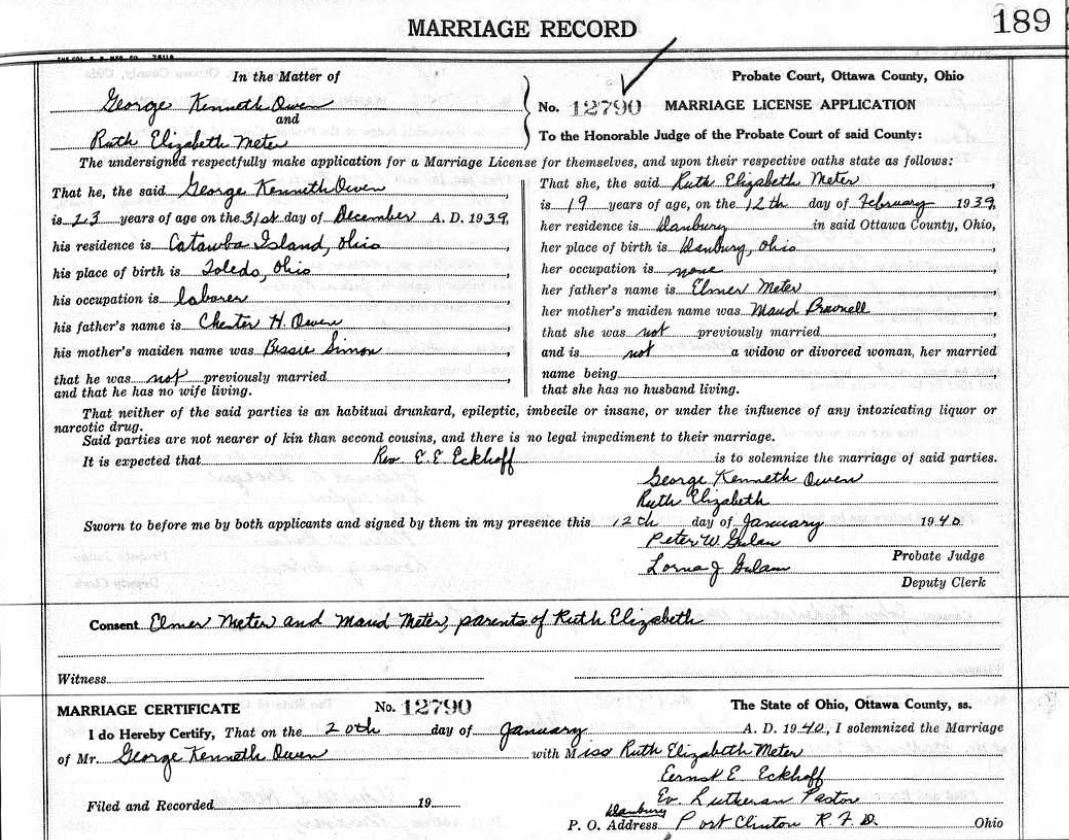 MARRIAGE RECORD
189
In the Matter of
George Kenneth Owen
and
Ruth Elizabeth Meter
Probate Court, Ottawa County, Ohio
No. 12790 MARRIAGE LICENSE APPLICATION
To the Honorable Judge of the Probate Court of said County:
The undersigned respectfully make application for a Marriage License for themselves, and upon their respective oaths state as follows:
That he, the said George Kenneth Owen,
is 23 years of age on the 31st day of December A. D. 1939,
his residence is Catawba Island, Ohio,
his place of birth is Toledo, Ohio,
his occupation is laborer,
his father's name is Chester H. Owen,
his mother's maiden name was Bessie Simon,
that he was not previously married,
and that he has no wife living.
That she, the said Ruth Elizabeth Meter,
is 19 years of age, on the 12th day of February 1939,
her residence is Danbury in said Ottawa County, Ohio,
her place of birth is Danbury, Ohio,
her occupation is none,
her father's name is Elmer Meter,
her mother's maiden name was Maud Brownell,
that she was not previously married,
and is not a widow or divorced woman, her married
name being
that she has no husband living.
That neither of the said parties is an habitual drunkard, epileptic, imbecile or insane, or under the influence of any intoxicating liquor or
narcotic drug.
Said parties are not nearer of kin than second cousins, and there is no legal impediment to their marriage.
It is expected that Rev. E. E. Eckhoff is to solemnize the marriage of said parties.
George Kenneth Owen
Ruth Elizabeth
Sworn to before me by both applicants and signed by them in my presence this 12th day of January 1940
Peter W. Gulau
Probate Judge
Lorna J. Gulau
Deputy Clerk
Consent Elmer Meter and Maud Meter, parents of Ruth Elizabeth
Witness
MARRIAGE CERTIFICATE No. 12790 The State of Ohio, Ottawa County, ss.
I do Hereby Certify, That on the 20th day of January A. D. 1940, I solemnized the Marriage
of Mr. George Kenneth Owen with Miss Ruth Elizabeth Meter
Ernst E. Eckhoff
Ev. Lutheran Pastor
Filed and Recorded 19
Danbury
P. O. Address Port Clinton R. F. D. Ohio